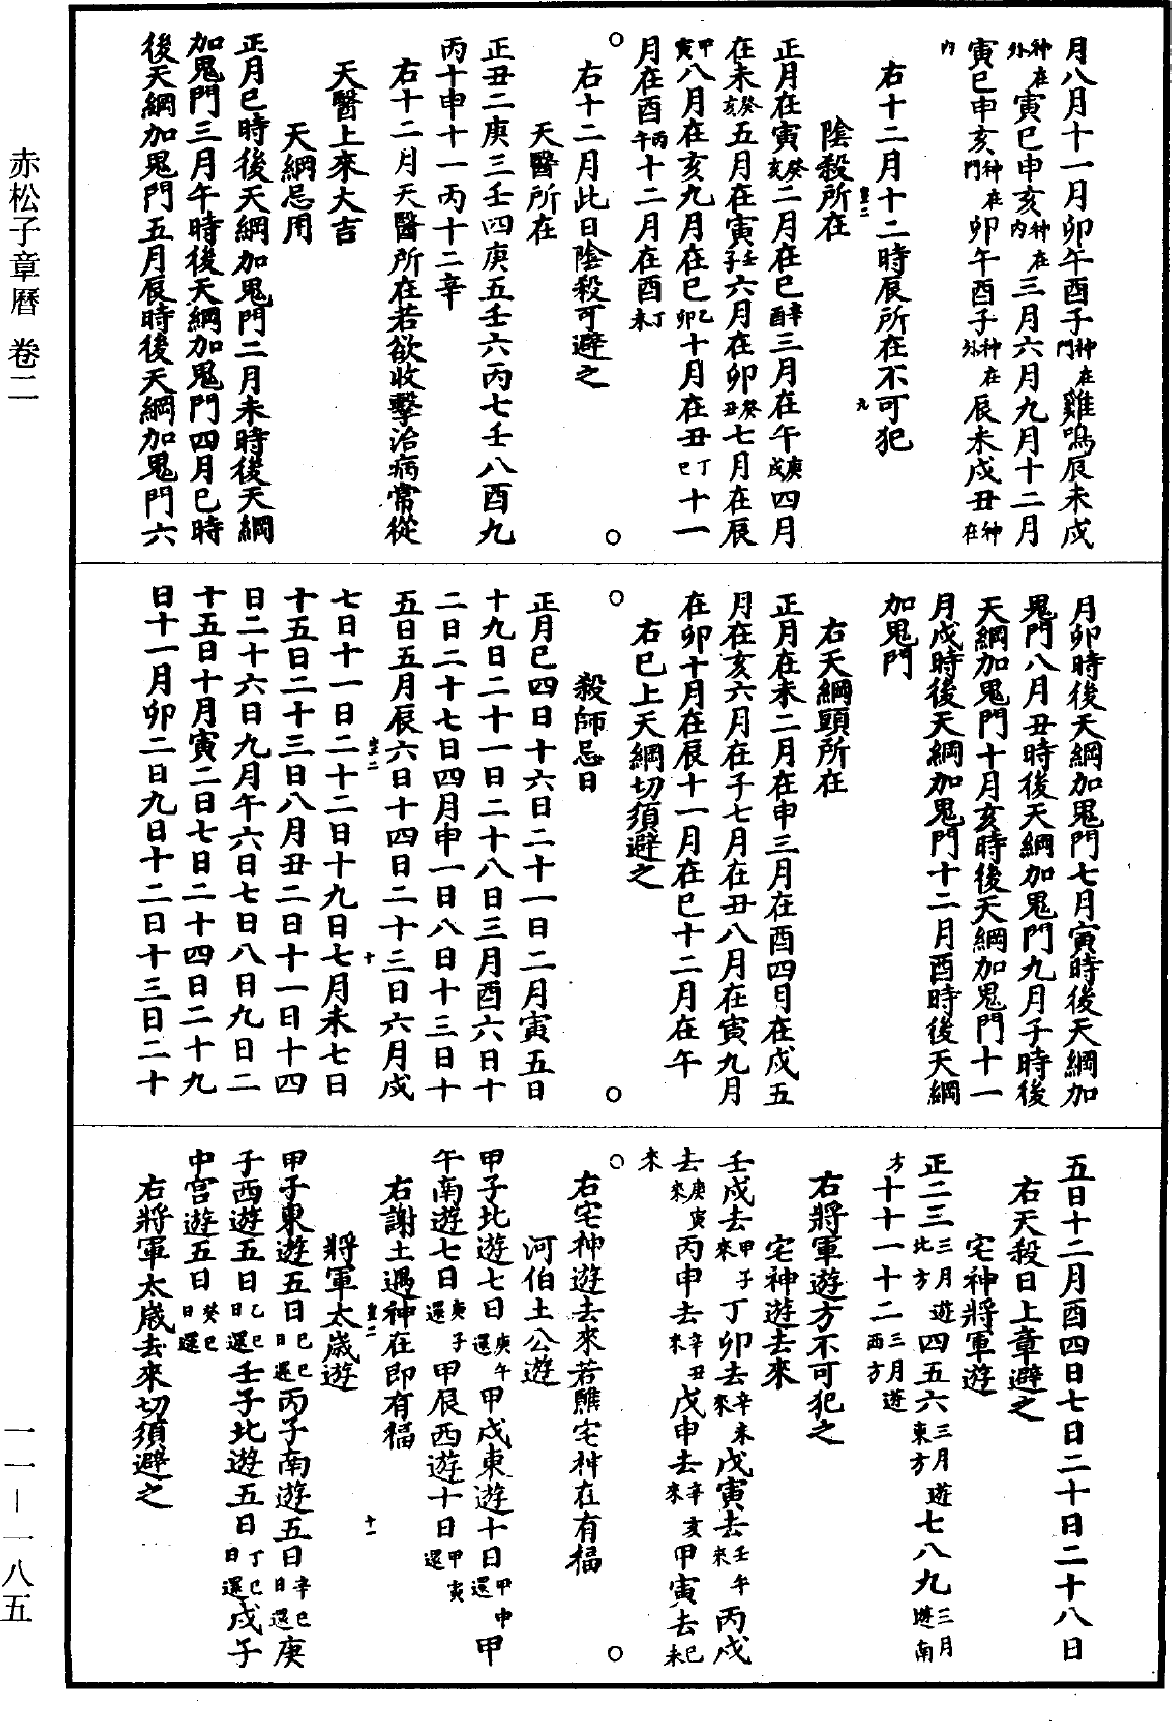 月八月十一月卯午酉子神在門雞鳴辰未戌
神在外寅巳申亥神在內三月六月九月十二月
寅巳申亥神在門卯午酉子神在外辰未戌丑神在
內
右十二月十二時辰所在不可犯
陰殺所在
正月在寅癸亥二月在巳辛酉三月在午庚戌四月
在未癸亥五月在寅壬子六月在卯癸丑七月在辰
甲寅八月在亥九月在巳乙卯十月在丑丁巳十一
月在酉丙午十二月在酉丁未
右十二月此日陰殺可避之
天醫所在
正丑二庚三壬四庚五壬六丙七壬八酉九
丙十申十一丙十二辛
右十二月天醫所在若欲收擊治病常從
天醫上來大吉
天綱忌用
正月巳時後天綱加鬼門二月未時後天綱
加鬼門三月午時後天綱加鬼門四月巳時
後天綱加鬼門五月辰時後天綱加鬼門六
月卯時後天綱加鬼門七月寅時後天綱加
鬼門八月丑時後天綱加鬼門九月子時後
天綱加鬼門十月亥時後天綱加鬼門十一
月戌時後天綱加鬼門十二月酉時後天綱
加鬼門
右天綱頭所在
正月在未二月在申三月在酉四月在戌五
月在亥六月在子七月在丑八月在寅九月
在卯十月在辰十一月在巳十二月在午
右巳上天綱切須避之
殺師忌日
正月巳四日十六日二十一日二月寅五日
十九日二十一日二十八日三月酉六日十
二日二十七日四月申一日八日十三日十
五日五月辰六日十四日二十三日六月戌
七日十一日二十二日十九日七月未七日
十五日二十三日八月丑二日十一日十四
日二十六日九月午六日七日八日九日二
十五日十月寅二日七日二十四日二十九
日十一月卯二日九日十二日十三日二十
五日十二月酉四日七日二十日二十八日
右天殺日上章避之
宅神將軍遊
正二三三月遊北方四五六三月遊東方七八九三月遊南
方十十一十二三月遊西方
右將軍遊方不可犯之
宅神遊去來
壬戌去甲子來丁卯去辛未來戊寅去壬午來丙戌
去庚寅來丙申去辛丑來戊申去辛亥來甲寅去巳未
來
右宅神遊去來若醮宅神在有福
河伯土公遊
甲子北遊七日庚午還甲戌東遊十日甲申還甲
午南遊七日庚子還甲辰西遊十日甲寅還
右謝土遇神在即有福
將軍太歲遊
甲子東遊五日己巳日還丙子南遊五日辛巳日還庚
子西遊五日乙巳日還壬子北遊五日丁巳日還戊子
中宮遊五日癸巳日還
右將軍太歲去來切須避之
赤松子章曆 卷二
一一－一八五